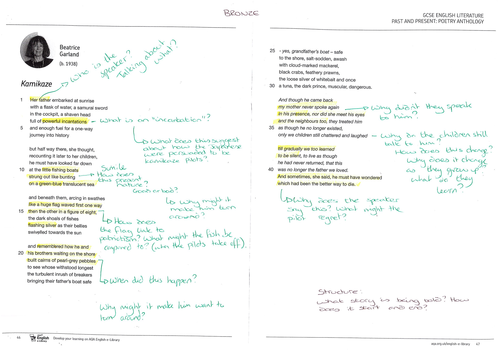 BRONZE
GCSE ENGLISH LITERATURE
PAST AND PRESENT: POETRY ANTHOLOGY
Beatrice
Garland
(b. 1938)
Who is the
speaker?
Talking about
what?
Kamikaze
1 Her father embarked at sunrise
with a flask of water, a samurai sword
in the cockpit, a shaven head
full of powerful incantations
5 and enough fuel for a one-way
journey into history
What is an "incantation"?
What does this suggest
about how the Japanese
were persuaded to be
kamikaze pilots?
but half way there, she thought,
recounting it later to her children,
he must have looked far down
10 at the little fishing boats
strung out like bunting
on a green-blue translucent sea
Simile
How does
this present
nature?
Good or bad?
and beneath them, arcing in swathes
like a huge flag waved first one way
15 then the other in a figure of eight,
the dark shoals of fishes
flashing silver as their bellies
swivelled towards the sun
Why might it
make him turn
around?
How does
the flag link to
patriotism? What might the fish be
compared to? (when the pilots take off).
and remembered how he and
20 his brothers waiting on the shore
built cairns of pearl-grey pebbles
to see whose withstood longest
the turbulent inrush of breakers
bringing their father's boat safe
When did this happen?
Why might it make him want to
turn around?
25 - yes, grandfather's boat – safe
to the shore, salt-sodden, awash
with cloud-marked mackerel,
black crabs, feathery prawns,
the loose silver of whitebait and once
30 a tuna, the dark prince, muscular, dangerous.
And though he came back
my mother never spoke again
in his presence, nor did she meet his eyes
and the neighbours too, they treated him
35 as though he no longer existed,
only we children still chattered and laughed
Why didn't they speak
to him?
Why do the children still
talk to him?
How does this change?
till gradually we too learned
to be silent, to live as though
he had never returned, that this
40 was no longer the father we loved.
And sometimes, she said, he must have wondered
which had been the better way to die.
Why does it change
as they grow up
what do they
learn?
Why does the speaker
say this? What might the
pilot regret?
Structure:
What story is being told? How
does it start and end?